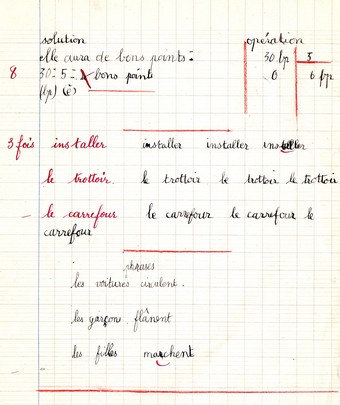 solution opération
elle aura de bons points :
30 bp 5
8 30 : 5 = bons points
0 6 bp
(bp) (é)
3 fois installer installer installer installer
le trottoir. le trottoir le trottoir le trottoir
– le carrefour le carrefour le carrefour le
carrefour
phrases
les voitures circulent.
les garçons flânent
les filles marchent